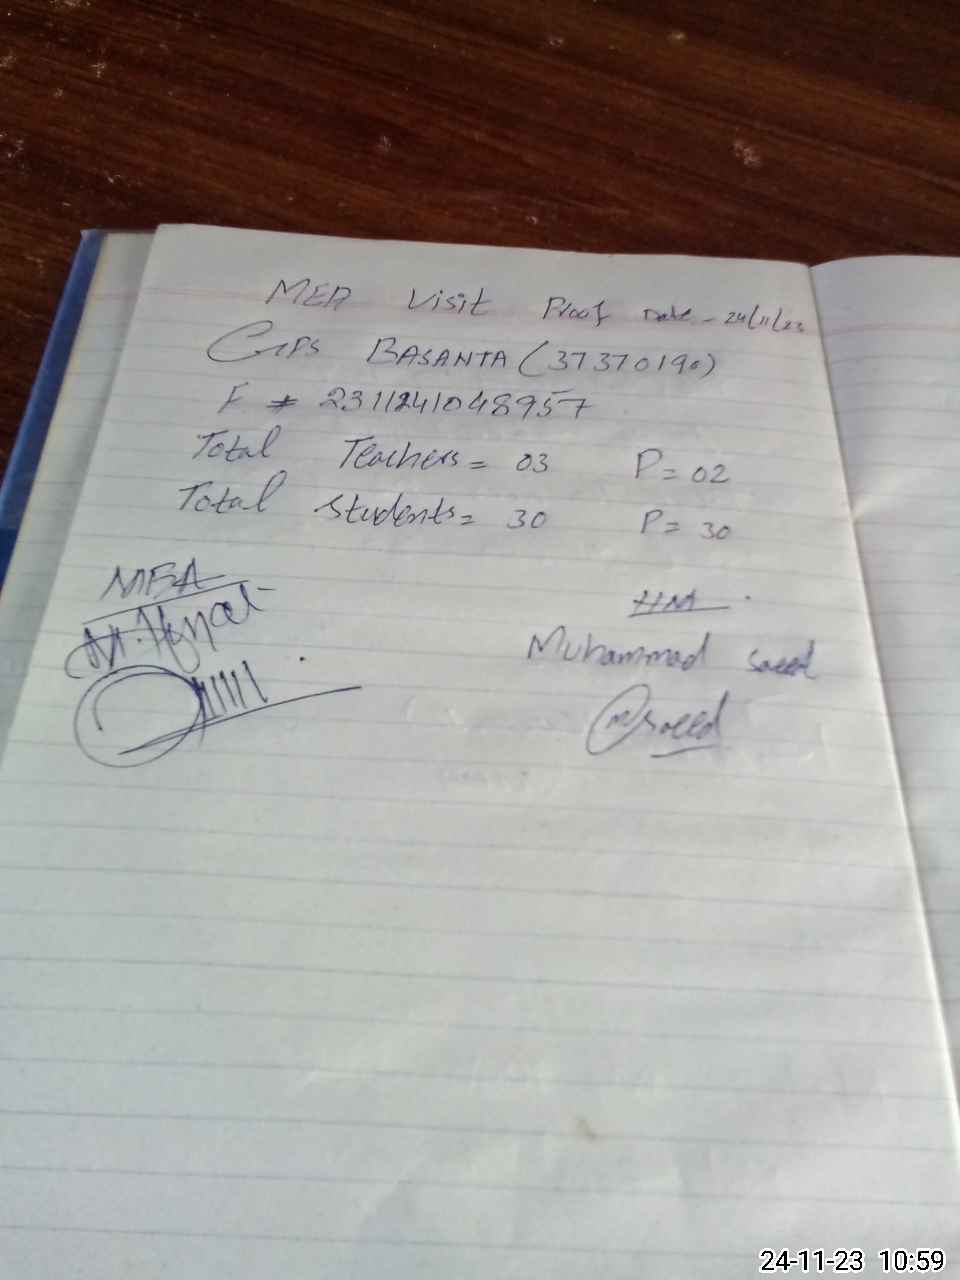 MEA Visit Proof Date - 24/11/23
GPS BASANTA (37370190)
F # 2311241048957
Total Teachers = 03 P = 02
Total Students = 30 P = 30
MEA
HM
Muhammad Saeed
M Saeed
24-11-23 10:59